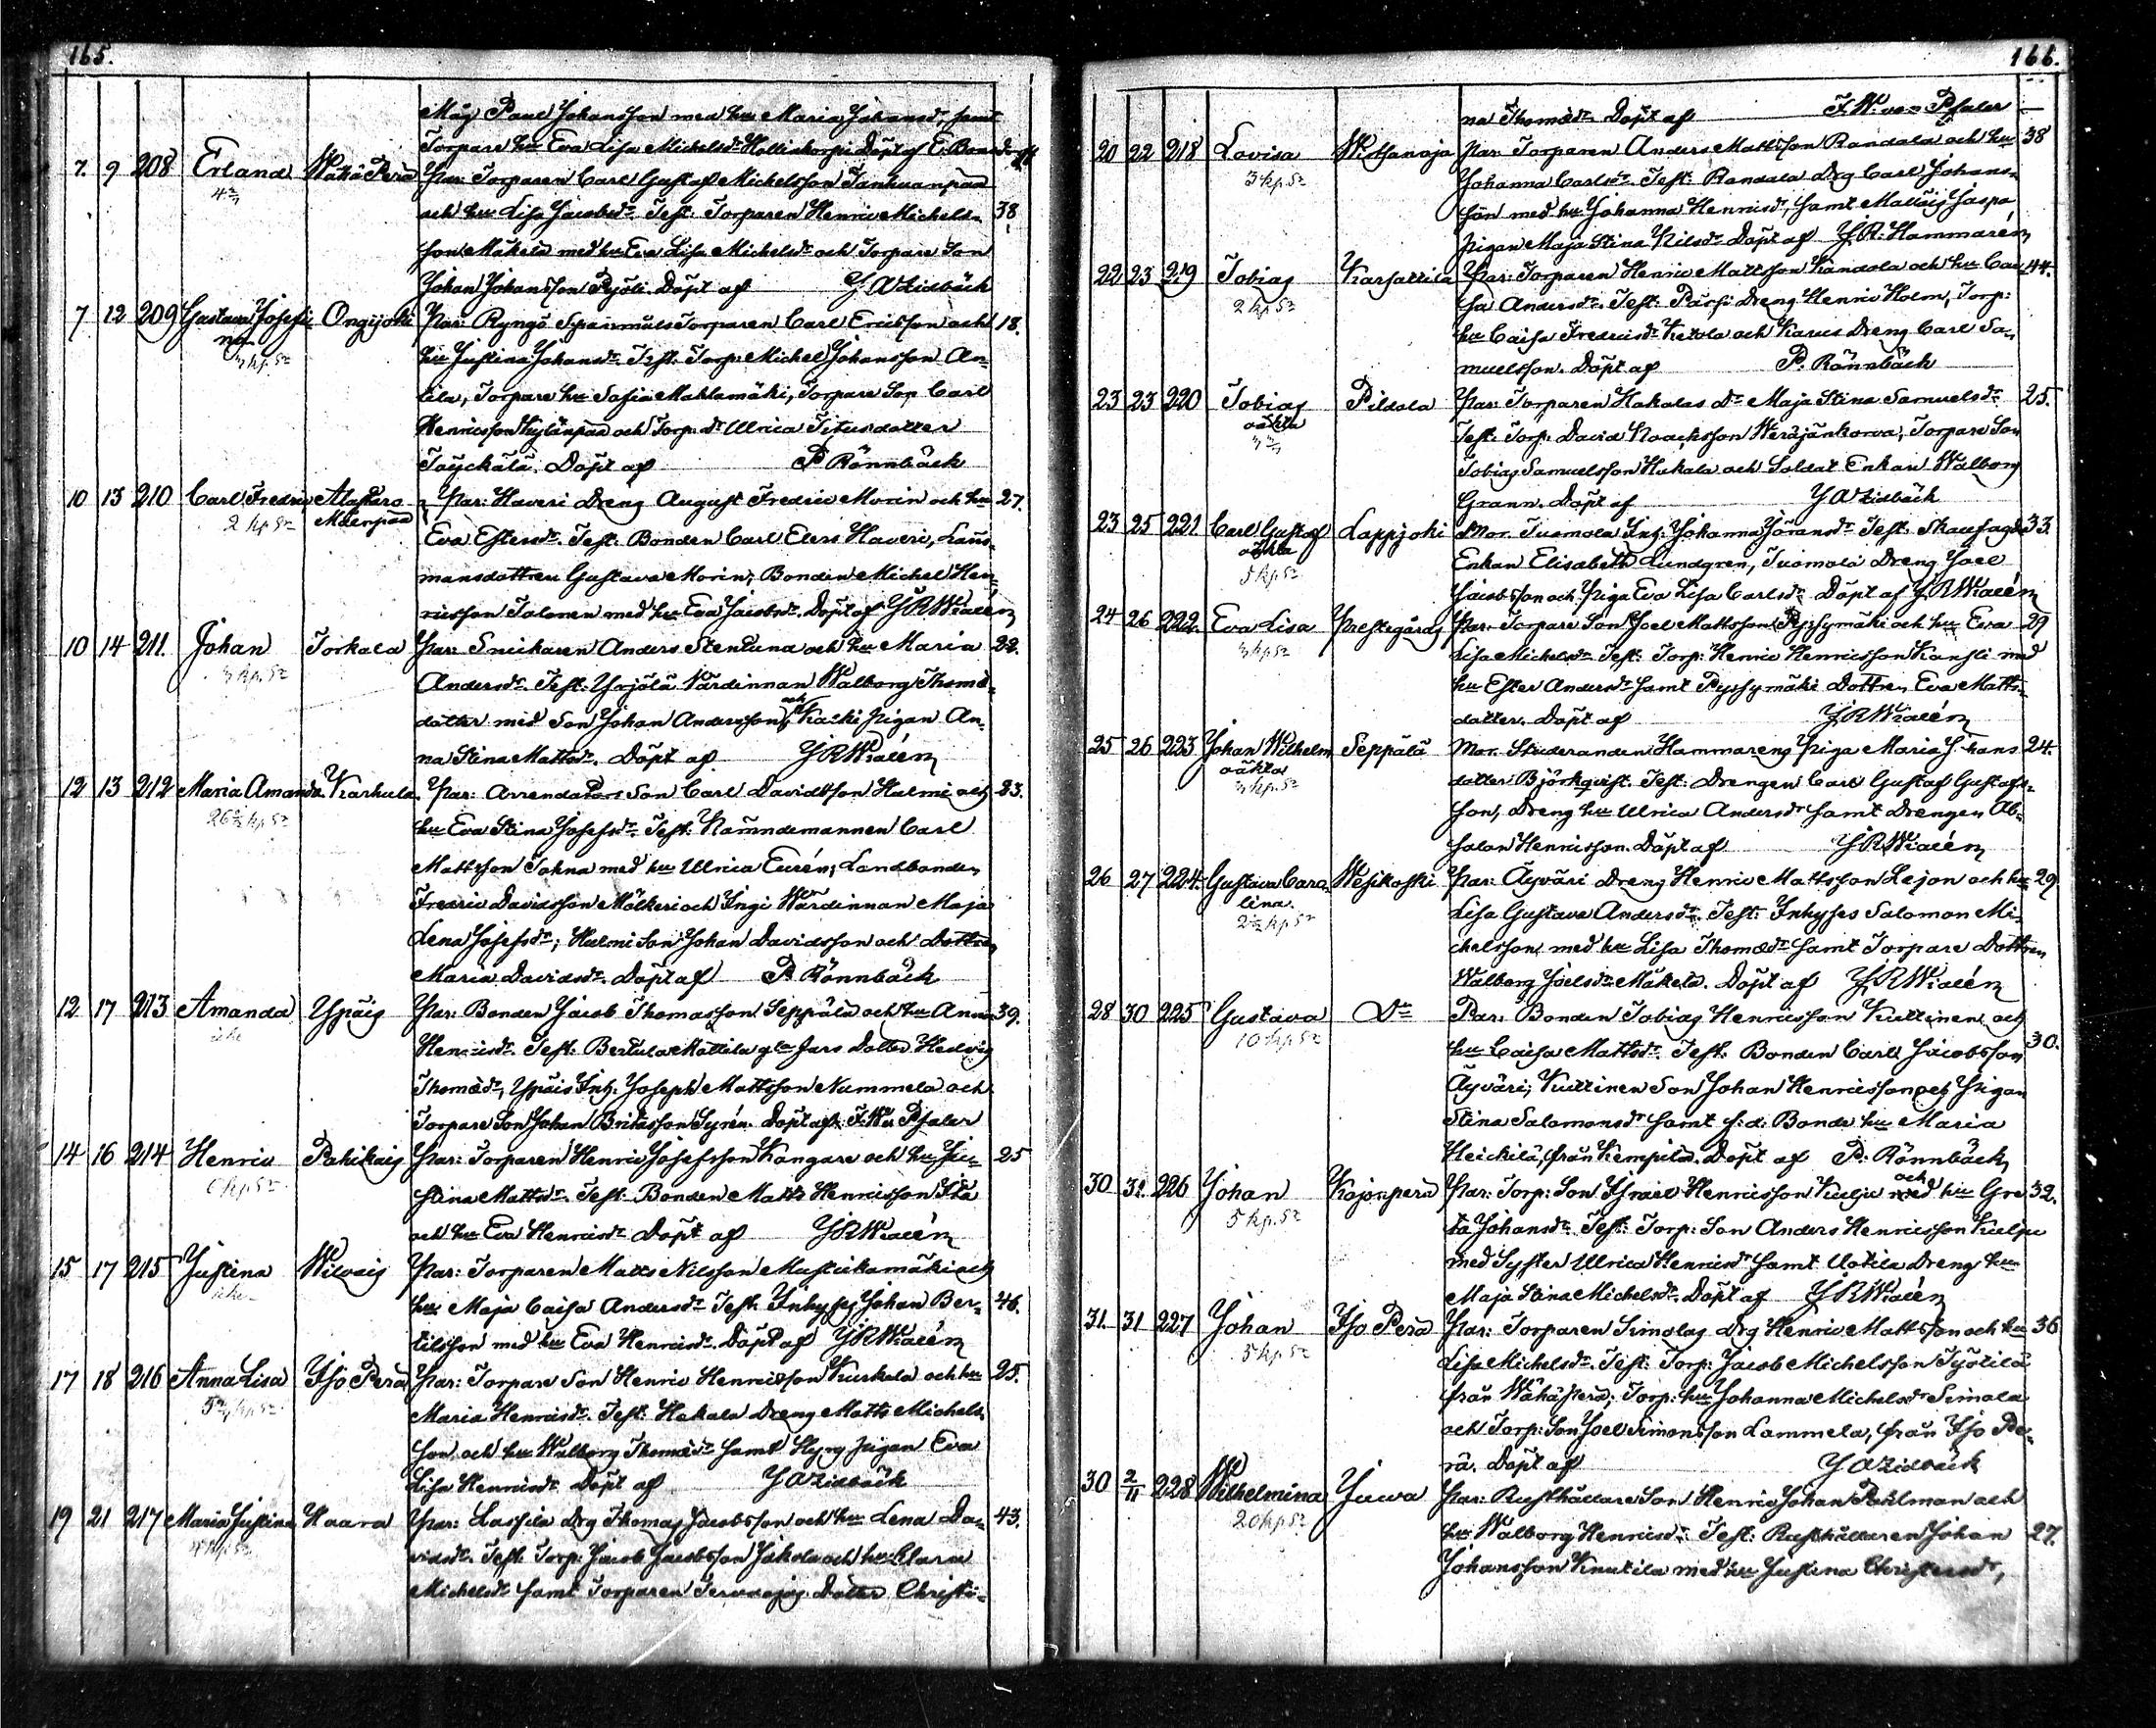 165.
Måg Paul Johansson med hu Maria Johansdr, samt
Torpare hu Eva Lisa Michelsdr Hollinkorpi Döpt af E. Bon
7. 9 208 Erland Wähä Perä Par: Torparen Carl Gustaf Michelsson Tanhuanpää
och hu Lisa Jacobsdr. Test: Torparen Henric Michels- 38
son Mäkelä med hu Eva Lisa Michelsdr och Torpare Son
Johan Johansson Pyöli. Döpt af J A Zidbäck
7 12 209 Gustava Josefi- Ongijoki Par: Ryngö Spannmåls Torparen Carl Ericsson och 18.
na 3 kp. 5r hu Justina Johansdr. Test. Torp: Michel Johansson An-
tila, Torpare hu Sofia Mahlamäki, Torpare Son Carl
Henricsson Kylänpää och Torp. dr Ulrica Titusdotter
Täyckälä. Döpt af P Rönnbäck
10 13 210 Carl Fredric Alastaro Par: Haveri Dreng August Fredric Morin och hu 27.
2 kp 5r Mäenpää
Eva Estersdr. Test. Bonden Carl Elers Haveri, Läns-
mansdottren Gustava Morin, Bonden Michel Hen-
ricsson Talonen med hu Eva Jacobsdr. Döpt af J R Widlén
10 14 211. Johan Torkala Par: Snickaren Anders Stenluna och hu Maria 22.
3 kp. 5r Andersdr. Test. Yrjölä Värdinnan Walborg Thomæ-
dotter med Son Johan Andersson, och Kaski pigan An-
na Stina Mattsdr. Döpt af J R Widlén
12 13 212 Maria Amanda Karhula. Par: Arrendators Son Carl Davidsson Hulmi och 23.
hu Eva Stina Josefsdr. Test: Nämndemannen Carl
Mattsson Johna med hu Ulrica Eurén, Landbonden
Fredric Davidsson Mälkeri och Ingi Wärdinnan Maja
Lena Josefsdr; Hulmi Son Johan Davidsson och Dottren
Maria Davidsdr. Döpt af P. Rönnbäck
12 17 213 Amanda Ypäis Par: Bonden Jacob Thomasson Seppälä och hu Anna 39.
Henricsdr. Test: Bertula Mattila gla Jars Dotter Hedvig
Thomædr, Ypäis Inh. Joseph Mattsson Nummela och
Torpare Son Johan Britasson Syrén. Döpt af F. W. v. Pfaler
14 16 214 Henric Pahikais Par: Torparen Henric Josefsson Kangare och hu Ju- 25
6 kp. 5r. stina Mattsdr. Test. Bonden Matts Henricsson Ila
och hu Eva Henricsdr Döpt af J R Widlén
15 17 215 Justina Wilvais Par: Torparen Matts Nilsson Mustikamäki och
hu Maja Caisa Andersdr Test. Inhyses Johan Ber- 46.
tilsson med hu Eva Henricsdr. Döpt af J R Widlén
17 18 216 Anna Lisa Iso Perä Par: Torpare Son Henric Henricsson Kurkela och hu 25.
Maria Henricsdr. Test. Hakala Dreng Matts Michels-
son och hu Walborg Thomædr samt Hyrg pigan Eva
Lisa Henricsdr Döpt af J A Zidbäck
19 21 217 Maria Justina Haara Par: Lassila Drg Thomas Jacobsson och hu Lena Da- 43.
4 kp. 5r vidsdr. Test. Torp: Jacob Jacobsson Jäkola och hu Clara
Michelsdr samt Torparen Dotter Christi-
166.
na Thomædr Döpt af F. W. von Pfaler
20 22 218 Lovisa Wirtsanoja Par: Torparen Anders Mattsson Randala och hu 38
3 kp 5r Johanna Carlsdr. Test: Randala Drg Carl Johans-
son med hu Johanna Henricsdr, samt Mallais Jaspa
pigan Maja Stina Nilsdr Döpt af J. R. Hammarén
22 23 219 Tobias Karsattila Par: Torparen Henric Mattsson Kandola och hu Cai- 44.
2 kp 5r sa Andersdr. Test: Pärssi Dreng Henric Holm, Torp:
hu Caisa Fredricsdr Ketola och Karus Dreng Carl Sa-
muelsson. Döpt af P. Rönnbäck
23 23 220 Tobias Pildola Par: Torparen Hakalas dr Maja Stina Samuelsdr 25.
oäkta
Test. Torp. David Noacksson Weräjänkorva, Torpare Son
Tobias Samuelsson Hakala och Soldat Enkan Walborg
Grann. Döpt af J A Zidbäck
23 25 221 Carl Gustaf Lappjoki Mor. Tuomola Inh: Johanna Göransdr Test. Skaufogde 33.
oäkta
5 kp. 5r Enkan Elisabeth Lundgren, Tuomola Dreng Joel
Jacobsson och Piga Eva Lisa Carlsdr. Döpt af J. R Widlén
24 26 222. Eva Lisa Prestegårds Par: Torpare Son Joel Mattsson Pyssymäki och hu Eva 29
3 kp. 5r Lisa Michelsdr Test. Torp: Henric Henricsson Kansli med
hu Ester Andersdr samt Pyssymäki Dottren Eva Matts-
dotter. Döpt af J R Widlén
25 26 223 Johan Wilhelm Seppälä Mor. Studeranden Hammarens Piga Maria Johans- 24.
oäkta dotter Björkqvist. Test. Drengen Carl Gustaf Gustafs-
3 kp. 5r son, Dreng hu Ulrica Andersdr samt Drengen Ab-
salon Henricsson. Döpt af J R Widlén
26 27 224. Gustava Caro- Wesikoski Par: Äyväri Dreng Henric Mattsson Lejon och hu 29.
lina. Lisa Gustava Andersdr. Test. Inhyses Salomon Mi-
chelsson med hu Lisa Thomædr samt Torpare Dottren
Walborg Joelsdr Mäkelä. Döpt af J R Widlén
28 30 225 Gustava Do Par. Bonden Tobias Henricsson Kuttinen och
10 kp 5r hu Caisa Mattsdr. Test. Bonden Carl Jacobsson 30.
Äyväri; Kuttinen Son Johan Henricsson och Pigan
Stina Salomonsdr samt f.d. Bonde hu Maria
Heickilä från Kempila. Döpt af P. Rönnbäck
30 31. 226 Johan Kojonperä Par: Torp: Son Israel Henricsson Kulju och hu Gre- 32.
5 kp. 5r ta Johansdr. Test: Torp: Son Anders Henricsson Kulju
med Syster Ulrica Henricsdr samt Uotila Dreng hu
Maja Stina Michelsdr. Döpt af J R Widlén
31. 31 227 Johan Iso Perä Par: Torparen Simolas Drg Henric Mattsson och hu 36
5 kp 5r Lisa Michelsdr. Test. Torp: Jacob Michelsson Työtilä
från Wähäperä; Torp: hu Johanna Michelsdr Simola
och Torp: Son Joel Simonsson Lammela, från Iso Pe-
rä. Döpt af J A Zidbäck
30 2/11 228 Wilhelmina Juva Par: Rusthållare Son Henric Johan Pahlman och
20 kp 5r hu Walborg Henricsdr. Test. Rusthållaren Johan 27.
Johansson Knutila med hu Justina Christersdr,